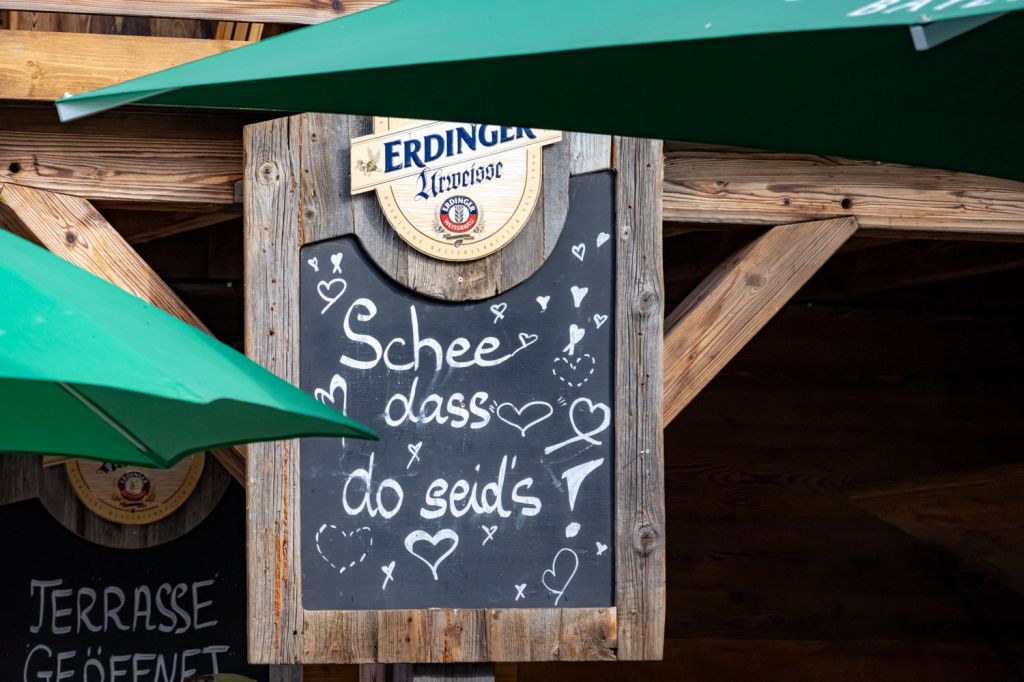 ERDINGER
Urweisse
ERDINGER
WEISSBRÄU
Schee
dass
do seid's
!
TERRASSE
GEÖFFNET